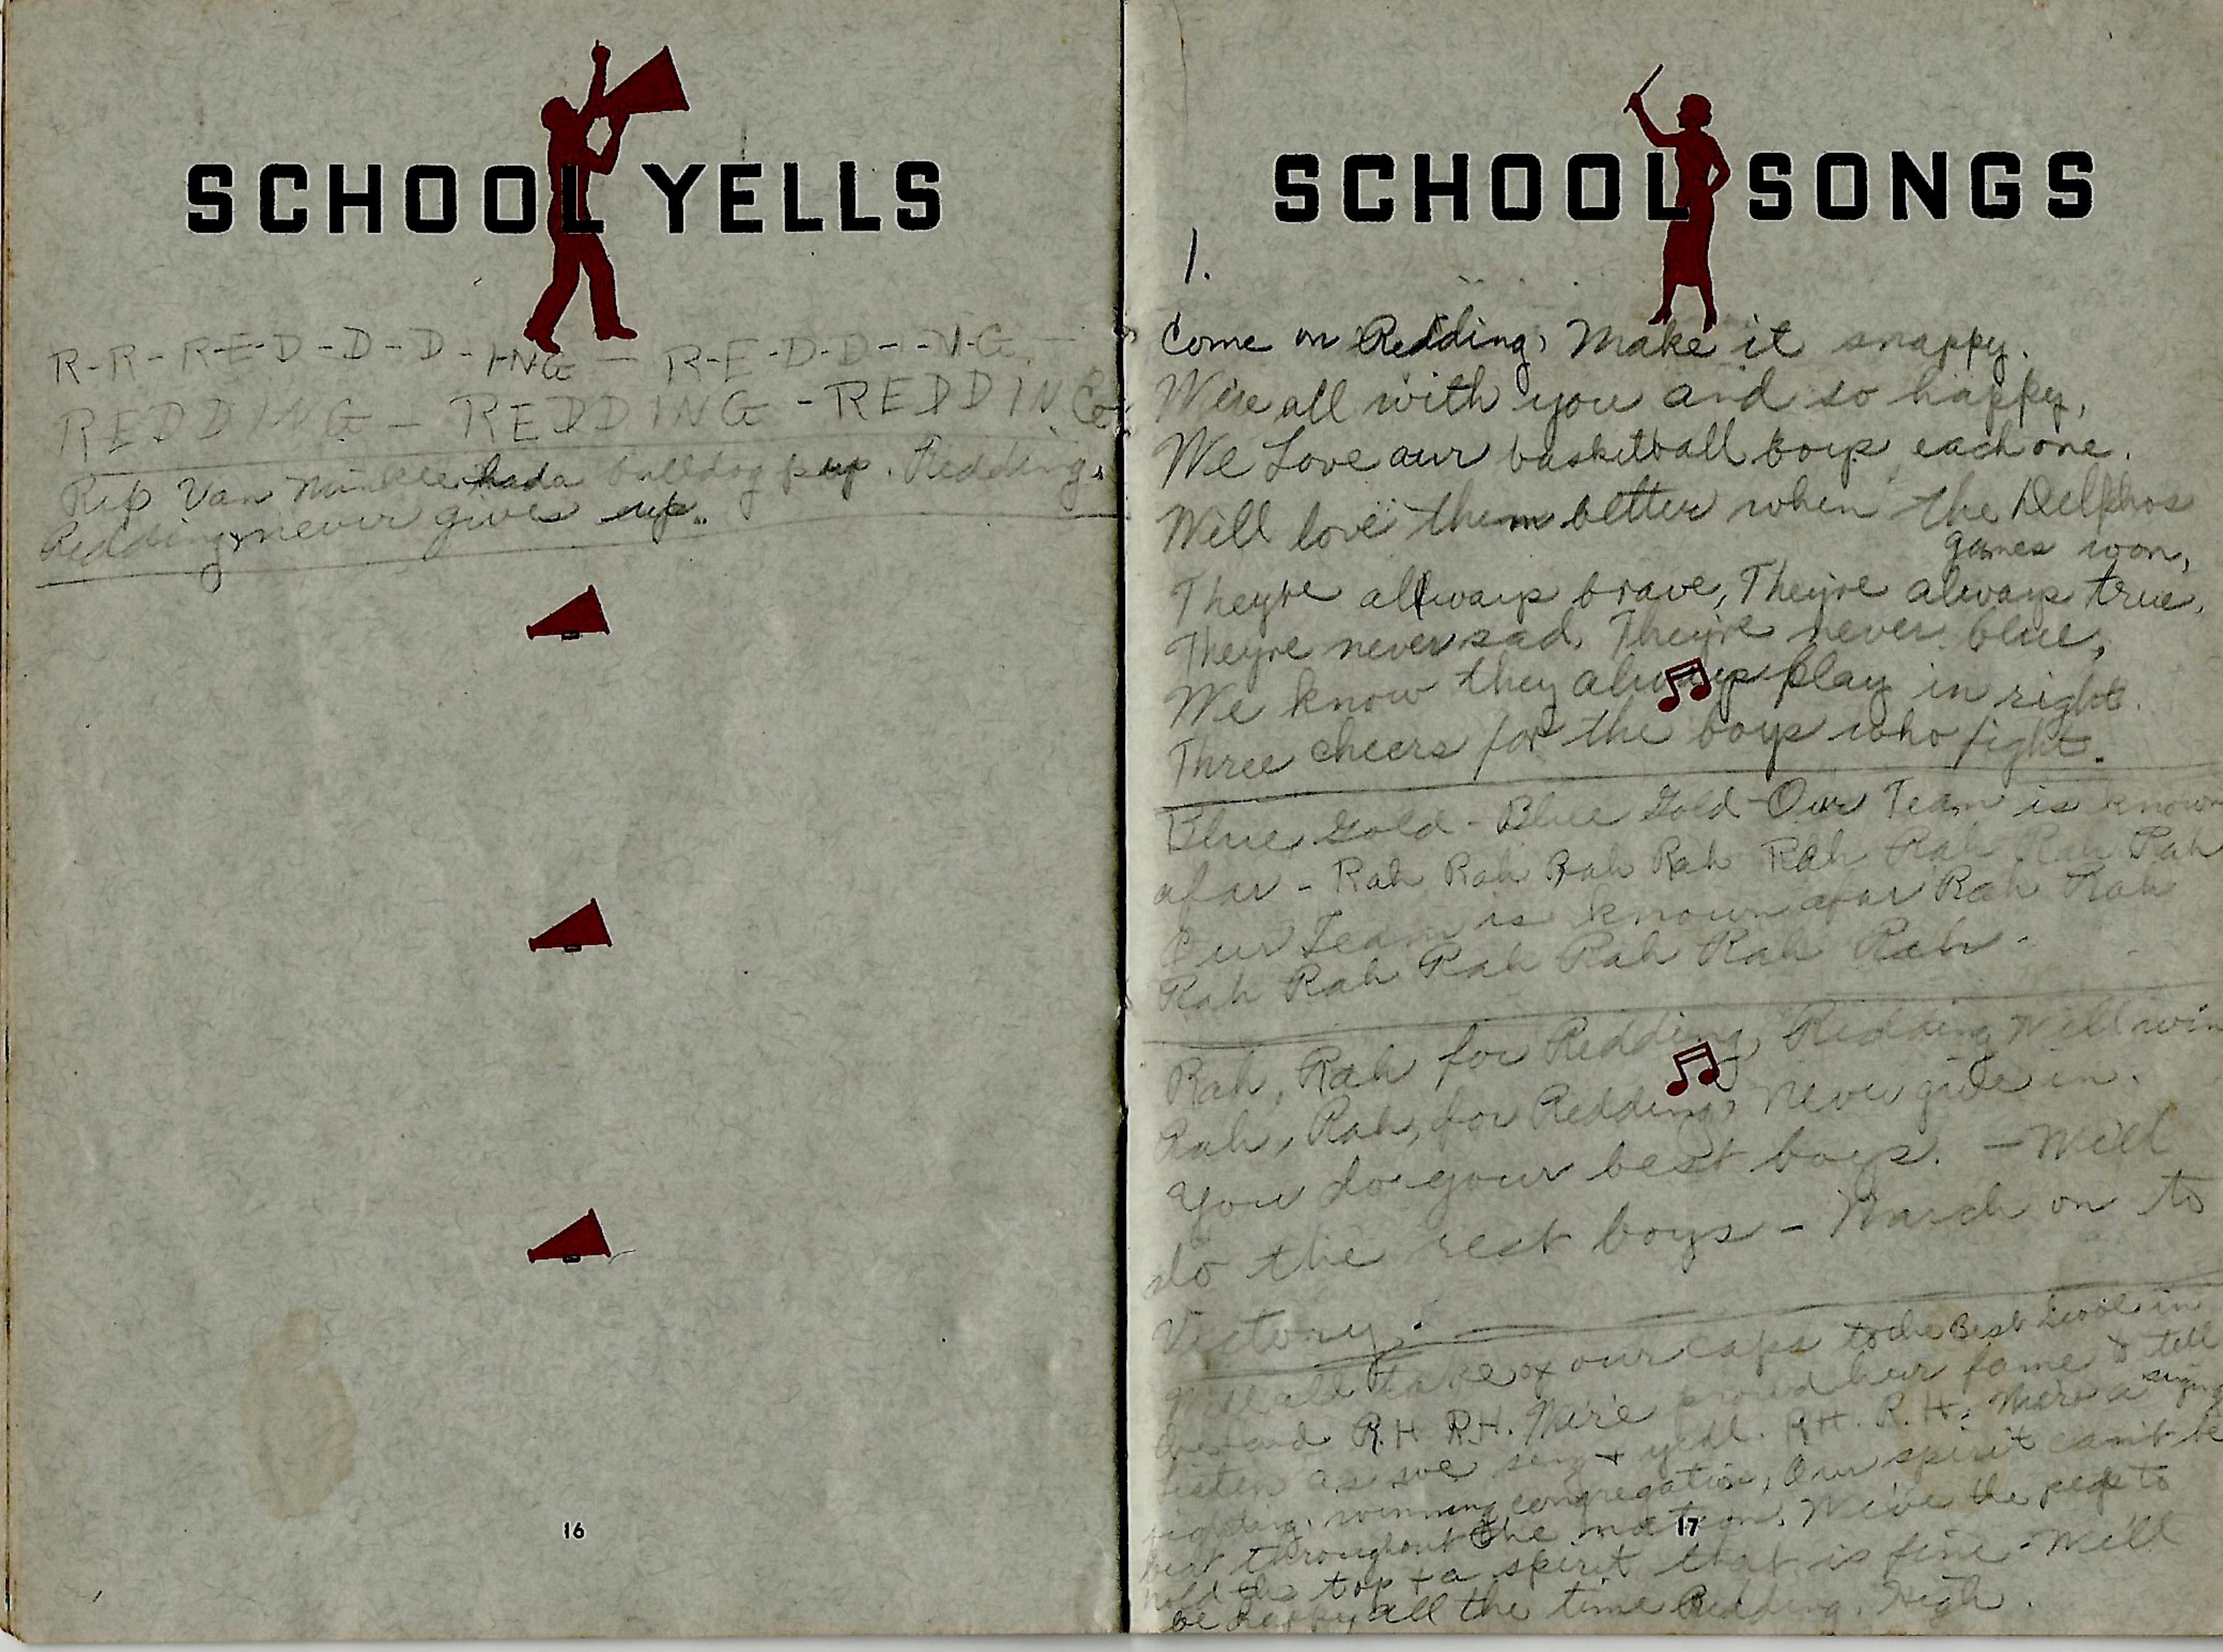 SCHOOL YELLS
R-R-R-E-D-D-D-ING — R-E-D-D--N-G-
REDDING - REDDING - REDDIN Co
Rip Van Winkle had a bulldog pup. Redding,
Redding, never gives up.
16
SCHOOL SONGS
1.
Come on Redding, Make it snappy.
We're all with you and so happy,
We Love our basketball boys each one.
Will love them better when the Delphos
games won,
They're allways brave, They're always true,
They're never sad, They're never blue,
We know they always play in right.
Three cheers for the boys who fight.
Blue, Gold - Blue Gold - Our Team is known
afar - Rah Rah Rah Rah Rah Rah Rah Rah
Our Team is known afar Rah Rah
Rah Rah Rah Rah Rah Rah.
Rah, Rah for Redding, Redding will win
Rah, Rah, for Redding, Never give in.
You do your best boys. - We'll
do the rest boys - March on to
Victory.
We'll all take off our caps to the Best in
R.H R.H. We're proud her fame & tell
Listen as we sing + yell. R.H. R.H. We're a sing
fighting, winning, congregation, Our spirit can't be
beat throughout the nation. We've the pep to
hold the top + a spirit that is fine - We'll
be happy all the time Redding High.
17